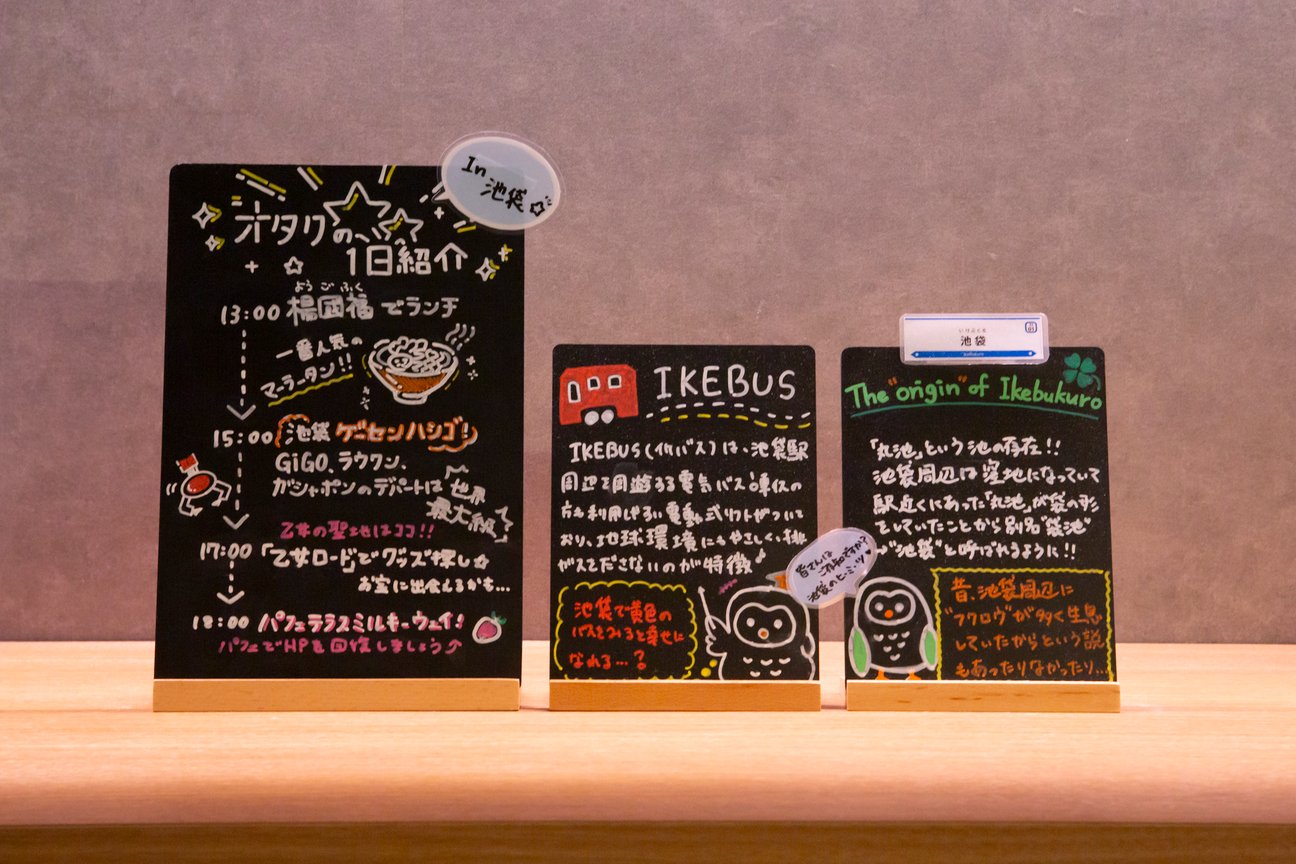 In
池袋☆
オタクの
1日紹介
ようごふく
13:00 楊國福でランチ
一番人気の
マーラータン!!
15:00 池袋ゲーセンハシゴ!
GiGO、ラウワン、
ガシャポンのデパートは"世界
最大級"
乙女の聖地はココ!!
17:00 「乙女ロード」でグッズ探し☆
お宝に出会えるかも…
18:00 パフェテラスミルキーウェイ!
パフェでHPを回復しましょう
IKEBUS
IKEBUS(イケバス)は、池袋駅
周辺で周遊する電気バス
方も利用しやすい電動式リフトがついて
おり、地球環境にもやさしく、排
ガスでださないのが特徴
池袋で黄色の
バスをみると幸せに
なれる…?
皆さんは
ご存知ですか?
池袋のヒ・ミ・ツ
いけぶくろ
池袋
Ikebukuro
The "origin" of Ikebukuro
「丸池」という池の存在!!
池袋周辺は窪地になっていて
駅近くにあった「丸池」が袋の形
をしていたことから別名"袋池"
が"池袋"と呼ばれるように!!
昔、池袋周辺に
"フクロウ"が多く生息
していたからという説
もあったりなかったり…